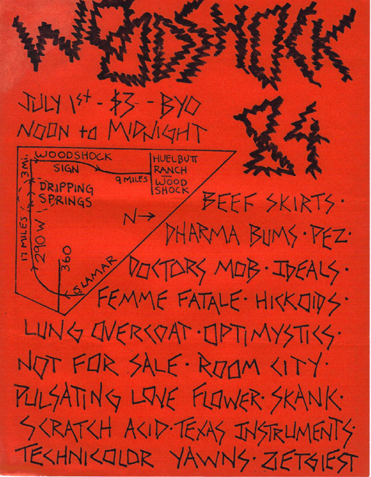 WOODSHOCK
84
JULY 1st - $3 - BYO
NOON to MIDNIGHT
WOODSHOCK
SIGN
HUELBUTT
RANCH
WOOD
SHOCK
9 MILES
3 MI.
DRIPPING
SPRINGS
17 MILES
290 W
360
S. LAMAR
N→
BEEF SKIRTS ·
DHARMA BUMS · PEZ ·
DOCTORS MOB · IDEALS ·
FEMME FATALE · HICKOIDS ·
LUNG OVERCOAT · OPTIMYSTICS ·
NOT FOR SALE · ROOM CITY ·
PULSATING LOVE FLOWER · SKANK ·
SCRATCH ACID · TEXAS INSTRUMENTS ·
TECHNICOLOR YAWNS · ZETGIEST